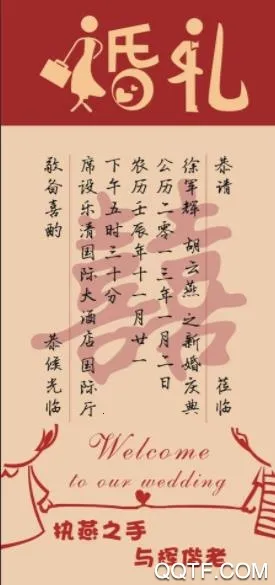 婚礼
恭请 莅临
徐军辉 胡云燕 之新婚庆典
公历二零一三年一月二日
农历壬辰年十一月廿一
下午五时三十分
席设乐清国际大酒店国际厅
敬备喜酌 恭候光临
囍
Welcome
to our wedding
执燕之手
与辉偕老
QQTF.COM